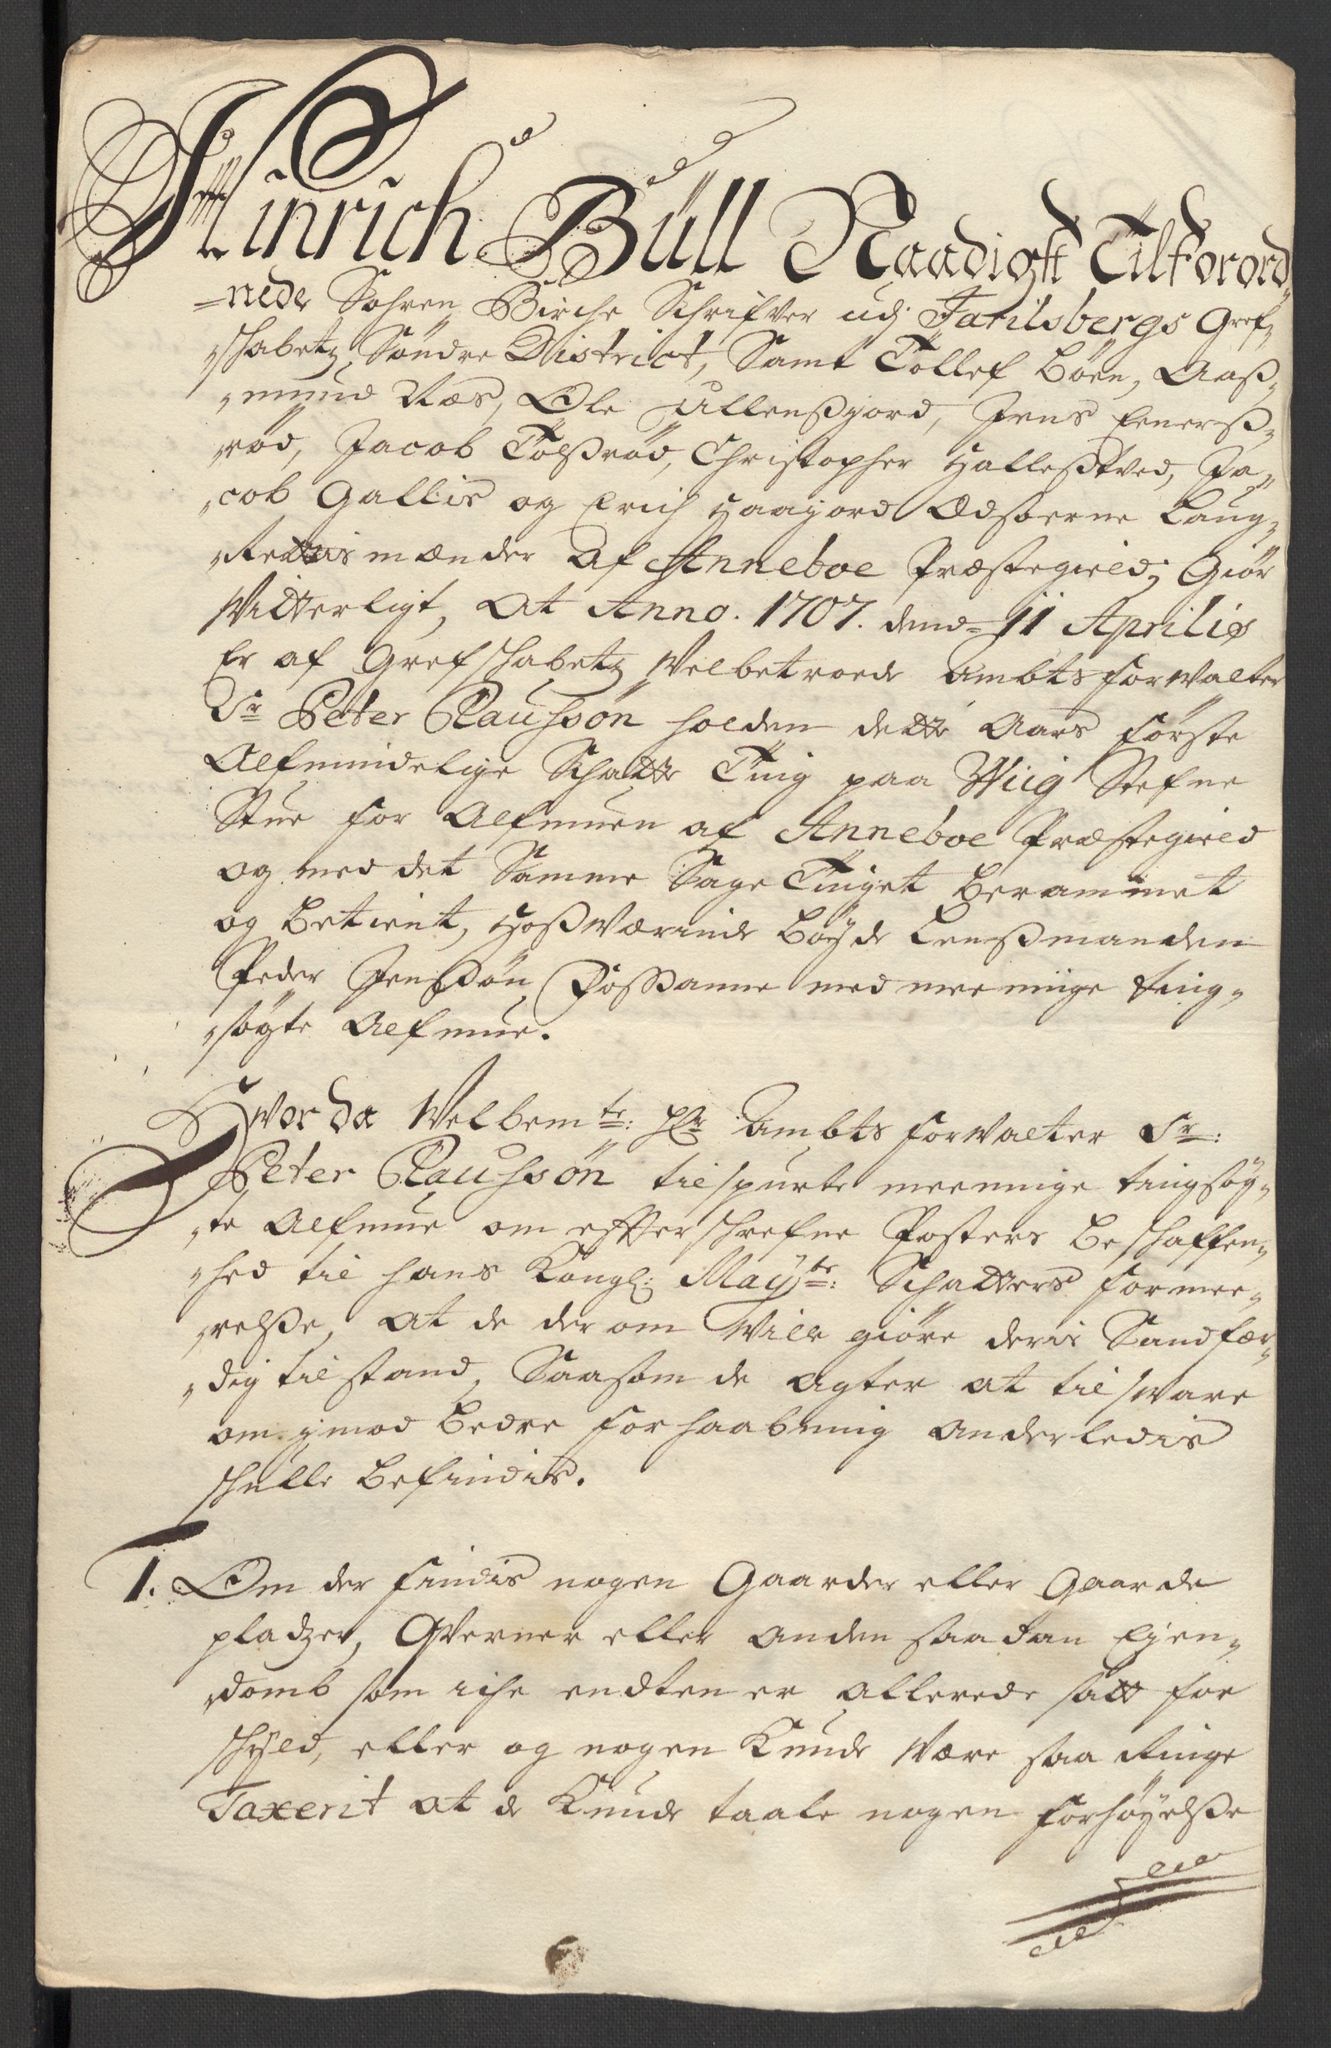 Hinrich Büll Naadigst Tilforord¬
-nede Sohren Birche Schrifver udj Jarilsbergs Gref¬
schabetz Søndre District, Samt Tollef Böen, Aaß¬
mund Næs, Ole Ullenßgiord, Jens Eenerß¬
röd, Jacob Tolßröd, Christopher Halleßtved, Ja¬
cob Gallis og Erich Haagiord Edsoerne Laug¬
Rettismænder Af Anneboe Præstegield; Giör
Vitterligt, At Anno. 1707. dend 11 Aprilis
Er af Grefschabetz Velbetroede Ambtsforwalter
Sr Peter Clausøn holden dette Aars første
Alfmindelige Schatte Ting paa Wiig Stefne
Stue for Alfmuen af Anneboe Præstegield
og med det Samme Sage Tinget berammet
og betient, Hoßværinde böyde Lenßmanden
Peder Jenßøn Foßanne med meenige ting¬
søgte Alfmue.
Hvorda Velbemte: Hr Ambtsforwalter Sr:
Peter Clausøn tilspurte meenige tingsøg¬
te Alfmue om effterschrefne Posters beschaffen¬
hed til hans Kongl: Mayts: Schatters formee¬
relße, At de derom ville giøre deris Sandfær¬
dig tilstand, Saasom de agter at tilsvare
om imod bedre forhaabning anderledis
schulle befindis.
1. Om der findis nogen Gaarder eller Gaarde
pladzer, Qverner eller anden saadan Eyen¬
domb som iche endten er allerede satt for
schyld, eller og nogen Kunde være saa Ringe
Taxerit at de Kunde taale nogen forhøyelße